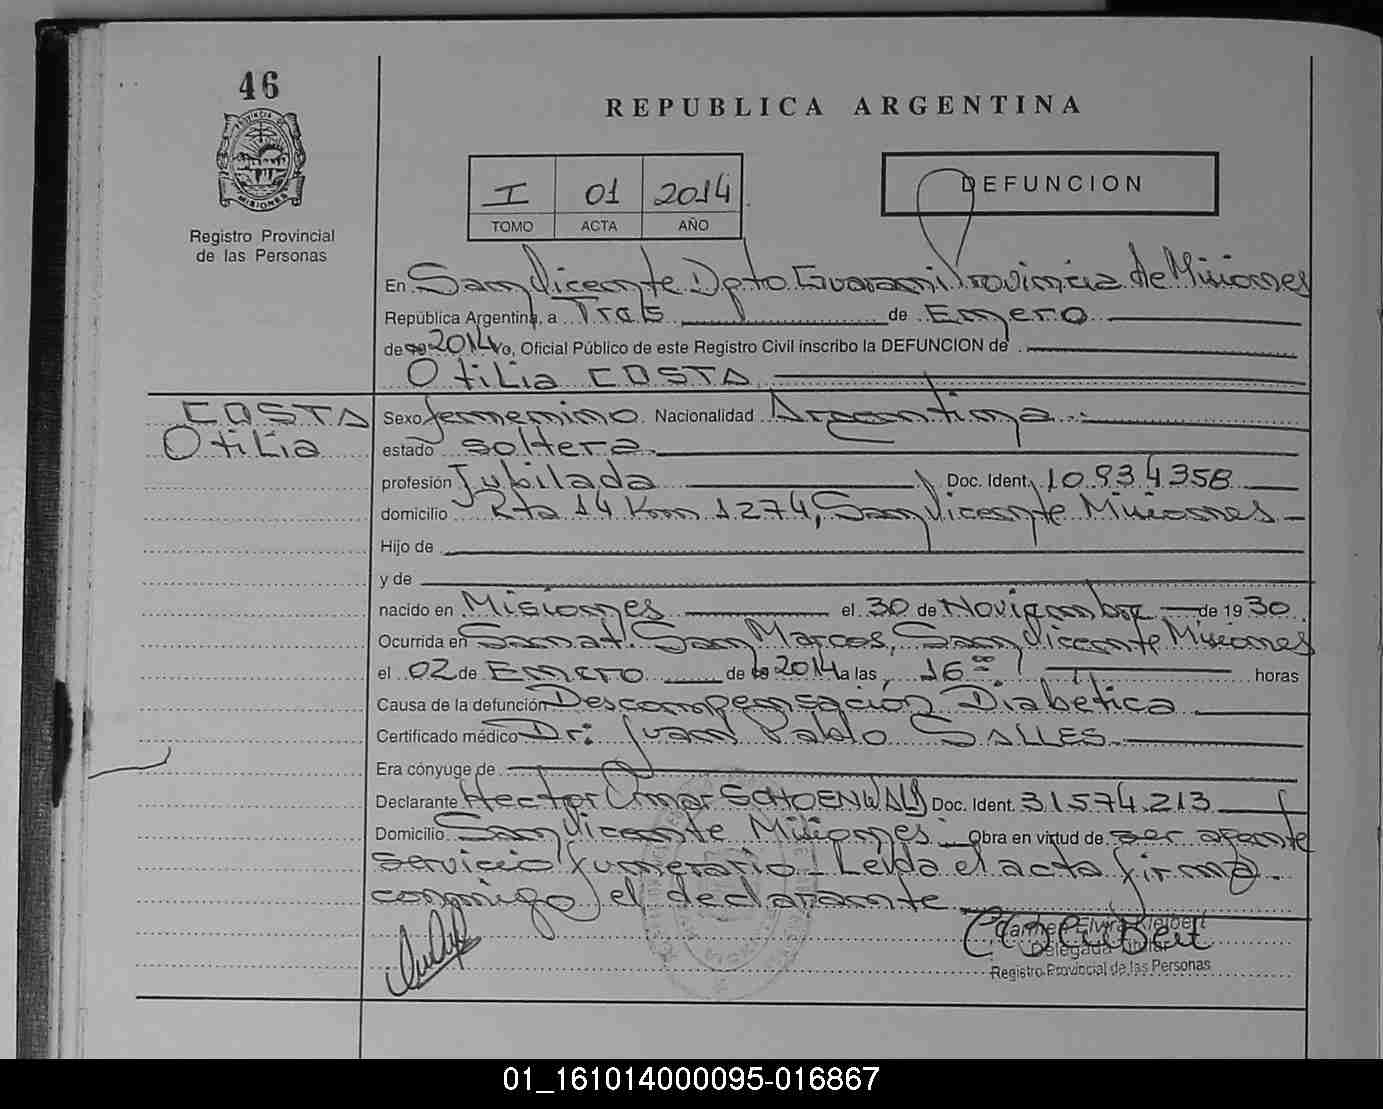 46
PROVINCIA DE
MISIONES
Registro Provincial
de las Personas
REPUBLICA ARGENTINA
I 01 2014
TOMO ACTA AÑO
DEFUNCION
En San Vicente Dpto Guarani Provincia de Misiones
República Argentina, a Tres de Enero
de 2014 Yo, Oficial Público de este Registro Civil inscribo la DEFUNCION de
Otilia COSTA
COSTA
Otilia
Sexo femenino Nacionalidad Argentina
estado soltera
profesión Jubilada Doc. Ident. 10.934358
domicilio Rta 14 Km 1274, San Vicente Misiones
Hijo de
y de
nacido en Misiones el 30 de Noviembre de 1930
Ocurrida en Sanat. San Marcos, San Vicente Misiones
el 02 de Enero de 2014 a las 16 horas
Causa de la defunción Descompensación Diabética
Certificado médico Dr: Juan Pablo SALLES
Era cónyuge de
Declarante Hector Omar SCHOENWALD Doc. Ident. 31574.213
Domicilio San Vicente Misiones Obra en virtud de ser agente
servicio funerario - Leida el acta firma
conmigo el declarante
Delegada Titular
Registro Provincial de las Personas
01_161014000095-016867